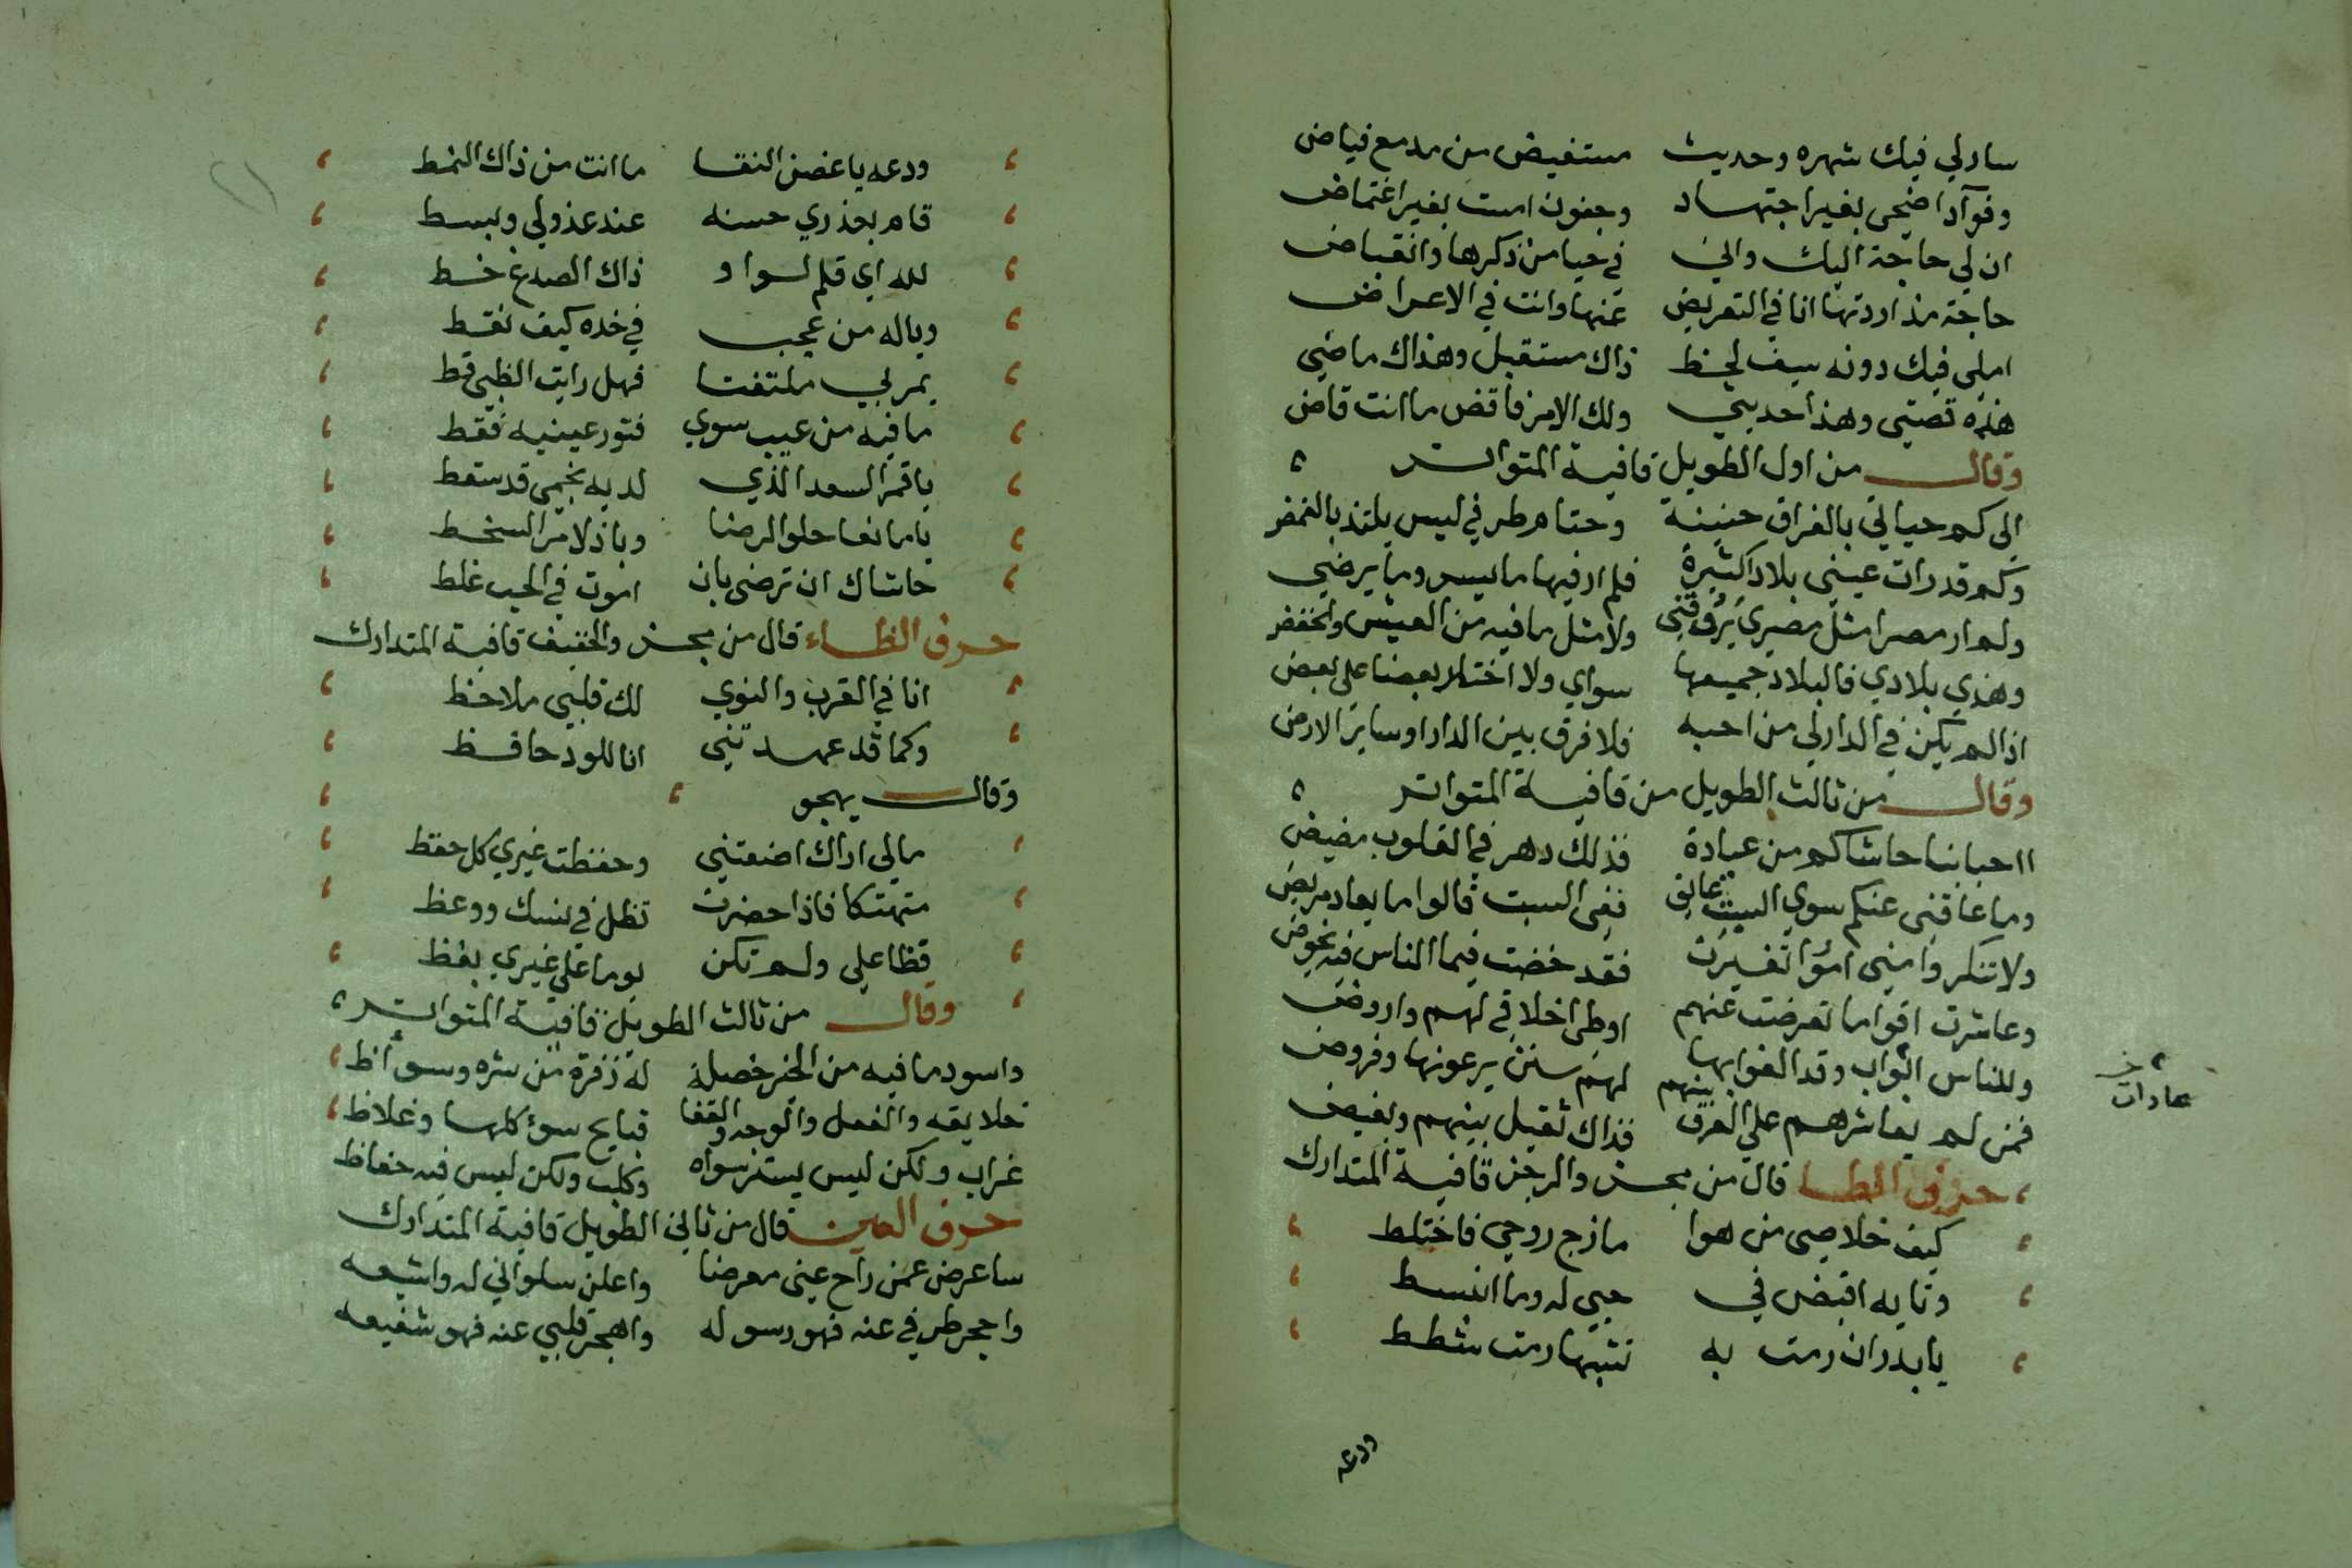 سار لي فيك شهره وحديث مستفيض من مدمع فياض
وفوآد اضحى بغير اجتهاد وجفون امست بغير اغتماض
ان لي حاجة اليك واني في حيا من ذكرها وانقباض
حاجة مذ اردتها انا في التعريض عنها وانت في الاعراض
املي فيك دونه سيف لحظ ذاك مستقبل وهذاك ماضي
هذه قصتي وهذا حديثي ولك الامر فاقض ما انت قاض
وقال من اول الطويل قافية المتواتر
الى كم حياتي بالفراق حزينة وحتام طرفي ليس يلتذ بالغمض
وكم قد رات عيني بلادا كثيرة فلم ار فيها ما يسر وما يرضي
ولم ار مصرا مثل مصري يروقني ولا مثل ما فيه من العيش والخفض
وهذي بلادي فالبلاد جميعها سواي ولا اختار بعضا على بعض
اذا لم يكن في الدار لي من احبه فلا فرق بين الدار او ساير الارض
وقال من ثالث الطويل من قافية المتواتر
ااحبابنا حاشاكم من عيادة فذلك دهر في القلوب مضيض
وما عاقني عنكم سوي السبت عايق ففي السبت قالوا ما يعاد مريض
ولا تنكروا مني امورا تغيرت فقد خضت فيما الناس فيه تخوض
وعاشرت اقواما تعرضت عنهم اوطي اخلاقي لهم واروض
وللناس اثواب وقد الفوا بها لهم سنن يرعونها وفروض
خ عادات
فمن لم يعاشرهم على العرف بينهم فذاك ثقيل بينهم وبغيض
حرف الطا قال من مجزو الرجز قافية المتدارك
كيف خلاصي من هوا مازج روحي فاختلط
وتايه اقبض في حبي له وما انبسط
يا بدر ان رمت به تشبها رمت شطط
ودعه
ودعه يا غصن النقا ما انت من ذاك النمط
قام بعذري حسنه عند عذولي وبسط
لله اي قلم لواو ذاك الصدغ خط
وياله من عجب في خده كيف نقط
يمر بي ملتفتا فهل رايت الظبي قط
ما فيه من عيب سوي فتور عينيه فقط
يا قمر السعد الذي لديه نجمي قد سقط
يا مانعا حلو الرضا وباذلا مر السخط
حاشاك ان ترضى بان اموت في الحب غلط
حرف الظاء قال من مجزو الخفيف قافية المتدارك
انا في القرب والنوي لك قلبي ملاحظ
وكما قد عهدتني انا للود حافظ
وقال يهجو
مالي اراك اضعتني وحفظت غيري كل حفظ
متهتكا فاذا حضرت تظل في نسك ووعظ
فظا علي ولم تكن يوما على غيري بفظ
وقال من ثالث الطويل قافية المتواتر
واسود ما فيه من الخير خصلة له زفرة من شره وشواظ
خلايقه والفعل والوجه والقفا قبايح سوء كلها وغلاظ
غراب ولكن ليس يستر سواه وكلب ولكن ليس فيه حفاظ
حرف العين قال من ثاني الطويل قافية المتدارك
ساعرض عمن راح عني معرضا واعلن سلواني له واشيعه
واحجر طرفي عنه فهو رسوله واهجر قلبي عنه فهو شفيعه